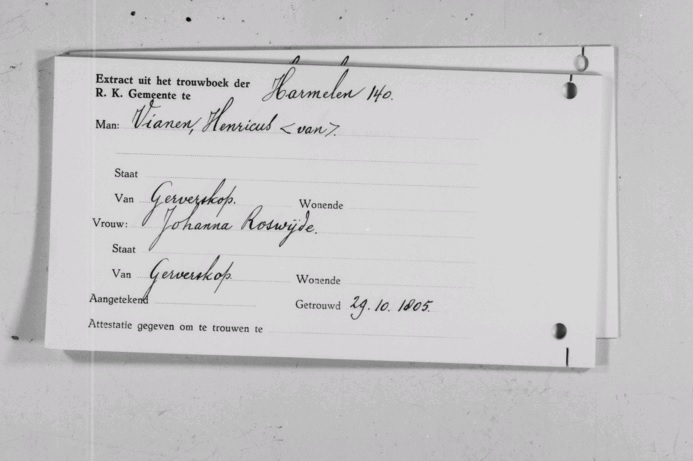 Extract uit het trouwboek der
R. K. Gemeente te Harmelen 140.
Man: Vianen, Henricus <van>.
Staat
Van Gerverskop. Wonende
Vrouw: Johanna Roswijde.
Staat
Van Gerverskop. Wonende
Aangetekend Getrouwd 29.10.1805.
Attestatie gegeven om te trouwen te